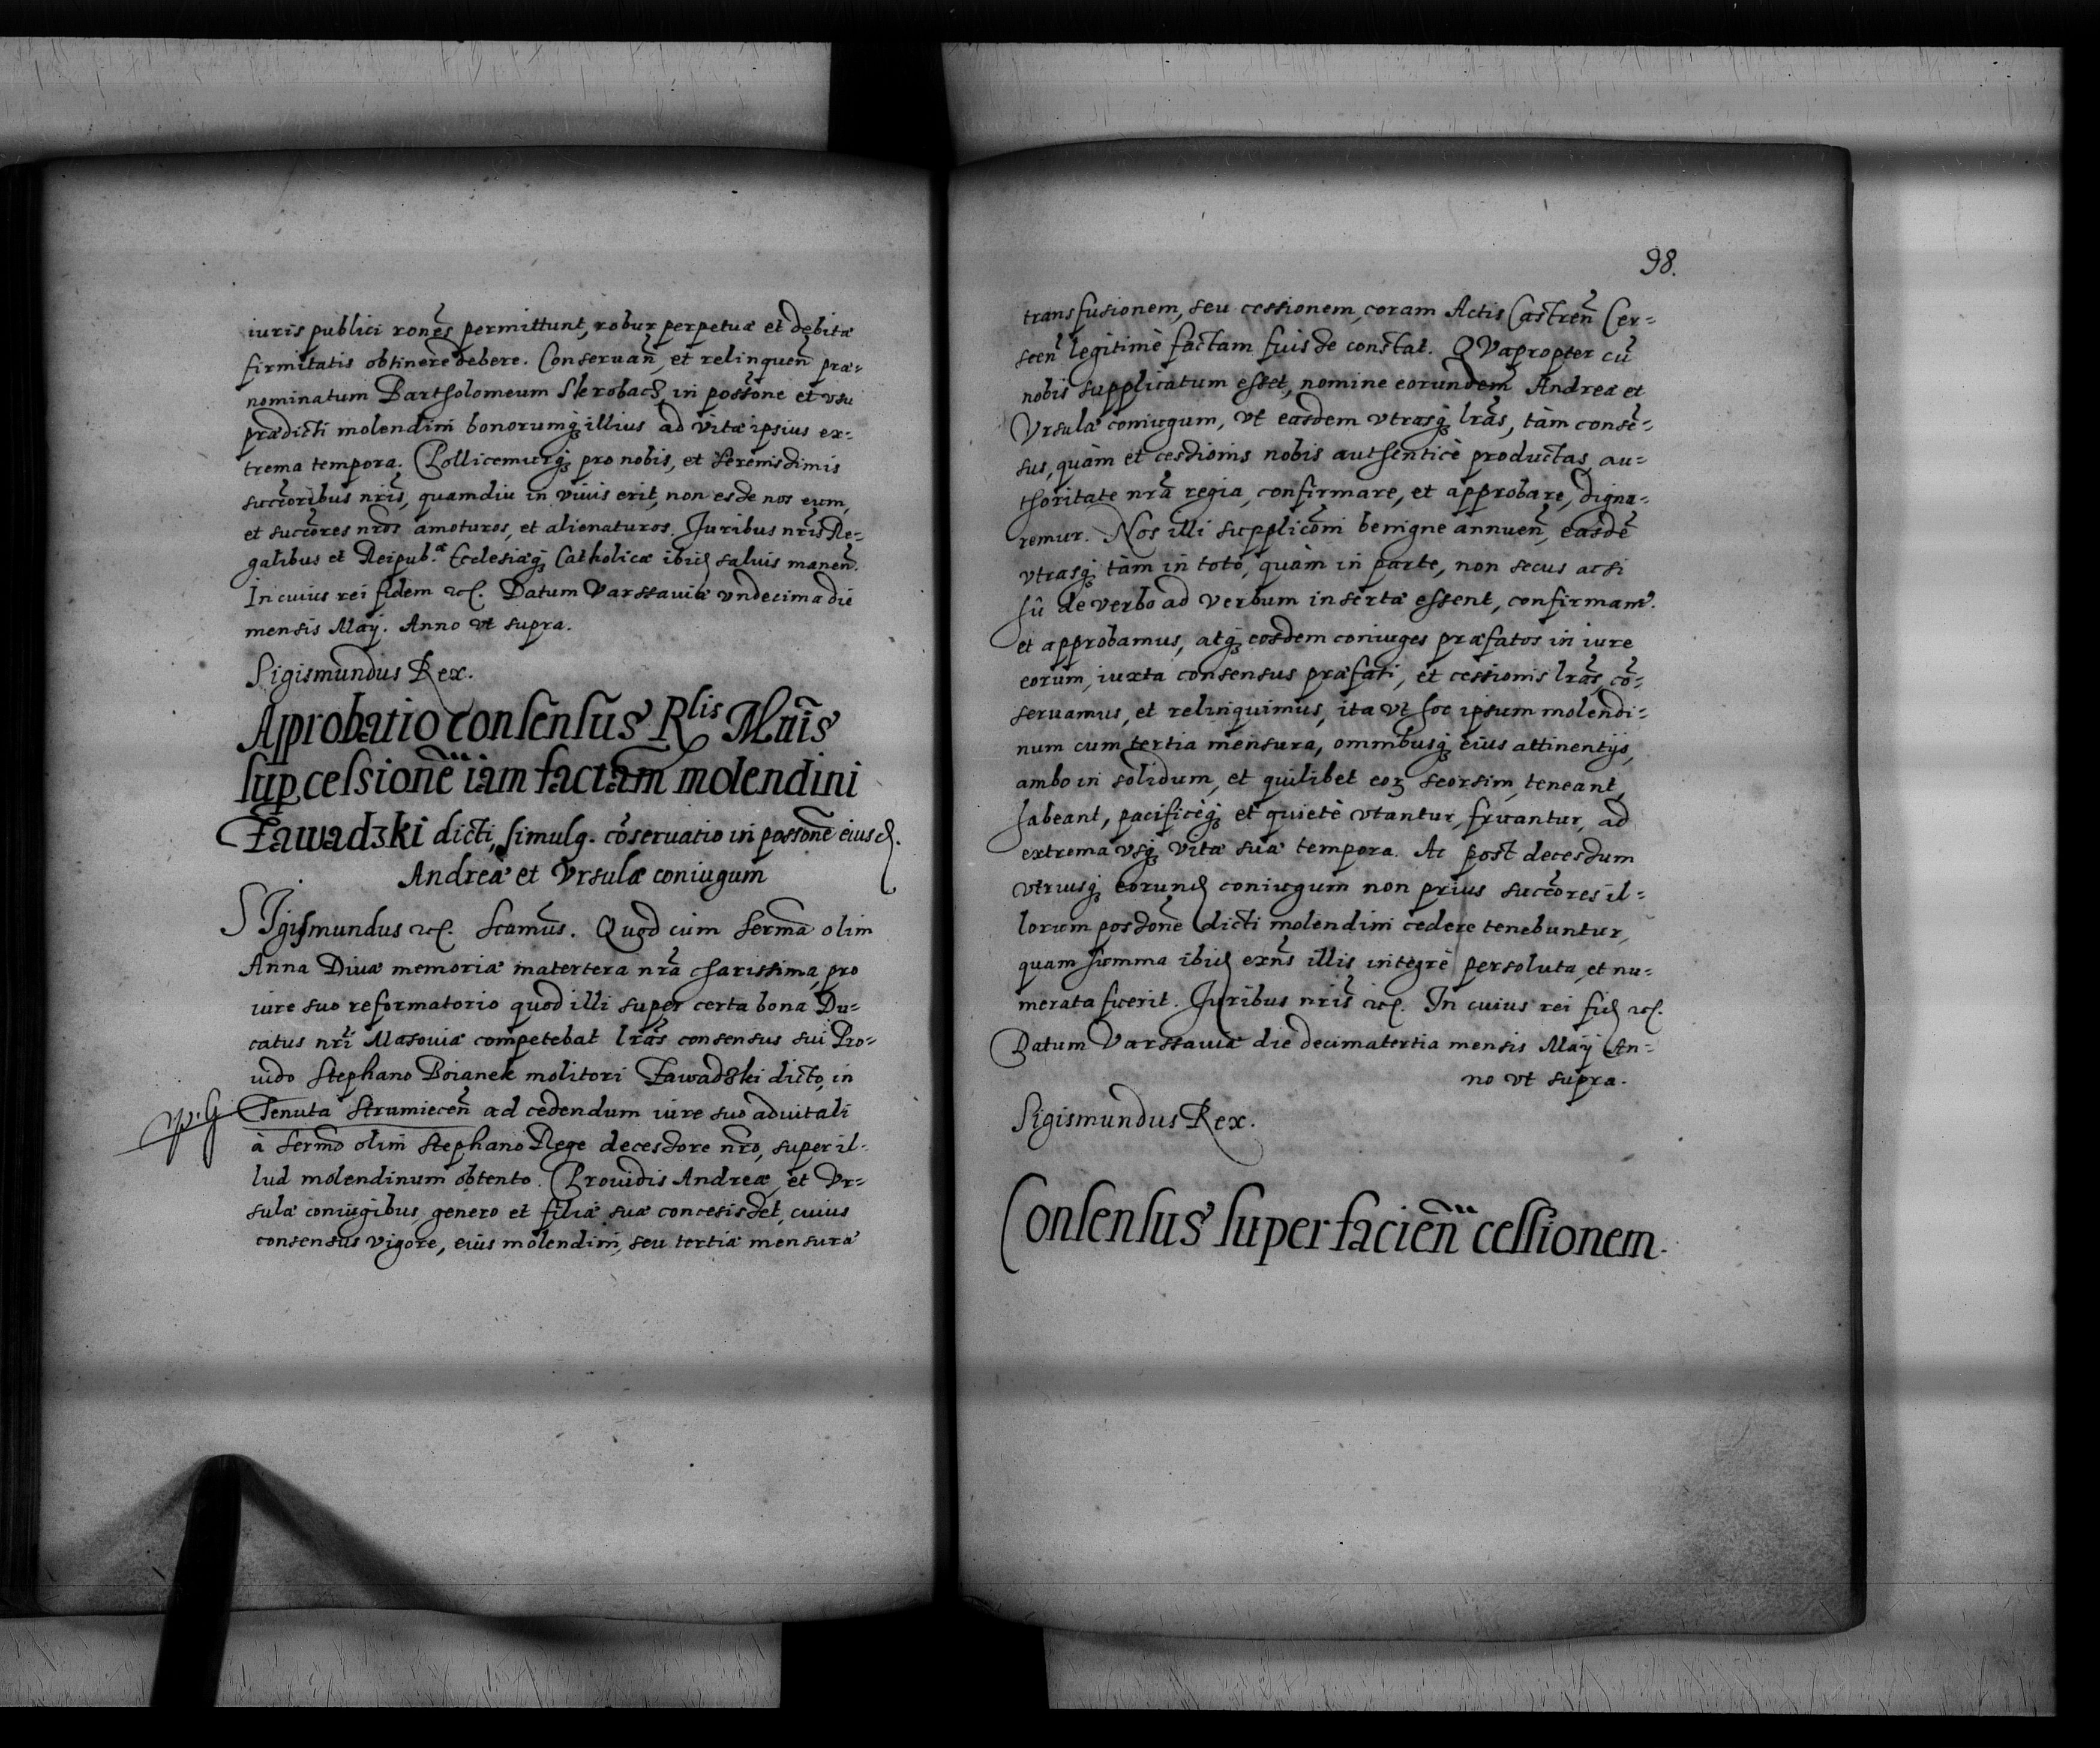 iuris publici rones permittunt, robur perpetuæ et debitæ
firmitatis obtinere debere. Conseruan̄, et relinquen̄ præ-
nominatum Bartholomeum Skrobacz, in possone et vsu
prædicti molendini bonorumq; illius ad vitæ ipsius ex-
trema tempora. Pollicemurq; pro nobis, et Serenissimis
succoribus nris, quamdiu in viuis erit, non esse nos eum,
et succores nros amoturos, et alienaturos. Juribus nris Re-
galibus et Reipub.æ Ecclesiæq; Catholicæ ibid. saluis manen̄.
In cuius rei fidem etc. Datum Varssauiæ vndecima die
mensis Maij. Anno vt supra.
Sigismundus Rex.
Approbatio consensus Rlis Mtis
sup cessionē iam factam molendini
Zawadzki dicti, simulq. cōseruatio in possone eiusd.
Andreæ et Vrsulæ coniugum
SIgismundus etc. Scamus. Quod cum serma olim
Anna Diuæ memoriæ matertera nra charissima, pro
iure suo reformatorio quod illi super certa bona Du-
catus nri Masouiæ competebat lras consensus sui Pro-
uido Stephano Boianek molitori Zawadzki dicto, in
Tenuta Strumiecen̄ ad cedendum iure suo aduitali
à sermo olim Stephano Rege decessore nro, super il-
lud molendinum obtento. Prouidis Andreæ, et Vr-
sulæ coniugibus, genero et filiæ suæ concesisset, cuius
consensus vigore, eius molendini, seu tertiæ mensuræ
98.
transfusionem, seu cessionem, coram Actis Castren̄ Cer-
scen̄ legitimè factam fuisse constat. QVapropter cū
nobis supplicatum esset, nomine eorundem Andreæ et
Vrsulæ coniugum, vt easdem vtrasq; lras, tàm consē-
sus, quàm et cessionis nobis authenticè productas, au-
thoritate nra regia, confirmare, et approbare, digna-
remur. Nos illi supplicōni benigne annuen̄, easdē
vtrasq; tàm in toto, quàm in parte, non secus ac si
hû de verbo ad verbum insertæ essent, confirmam9.
et approbamus, atq; eosdem coniuges præfatos in iure
eorum, iuxta consensus præfati, et cessionis lras, cō-
seruamus, et relinquimus, ita vt hoc ipsum molendi-
num cum tertia mensura, omnibusq; eius attinentijs,
ambo in solidum, et quilibet eoꝝ seorsim, teneant,
habeant, pacificèq; et quietè vtantur, fruantur, ad
extrema vsq; vitæ suæ tempora. Ac post decessum
vtriusq; eorund. coniugum non prius succores il-
lorum possone dicti molendini cedere tenebuntur,
quam summa ibid. exn̄s illis integrè persoluta, et nu-
merata fuerit. Juribus nris etc. In cuius rei fid. etc.
Datum Varssauiæ die decimatertia mensis Maij An-
no vt supra.
Sigismundus Rex.
Consensus super facien̄ cessionem.